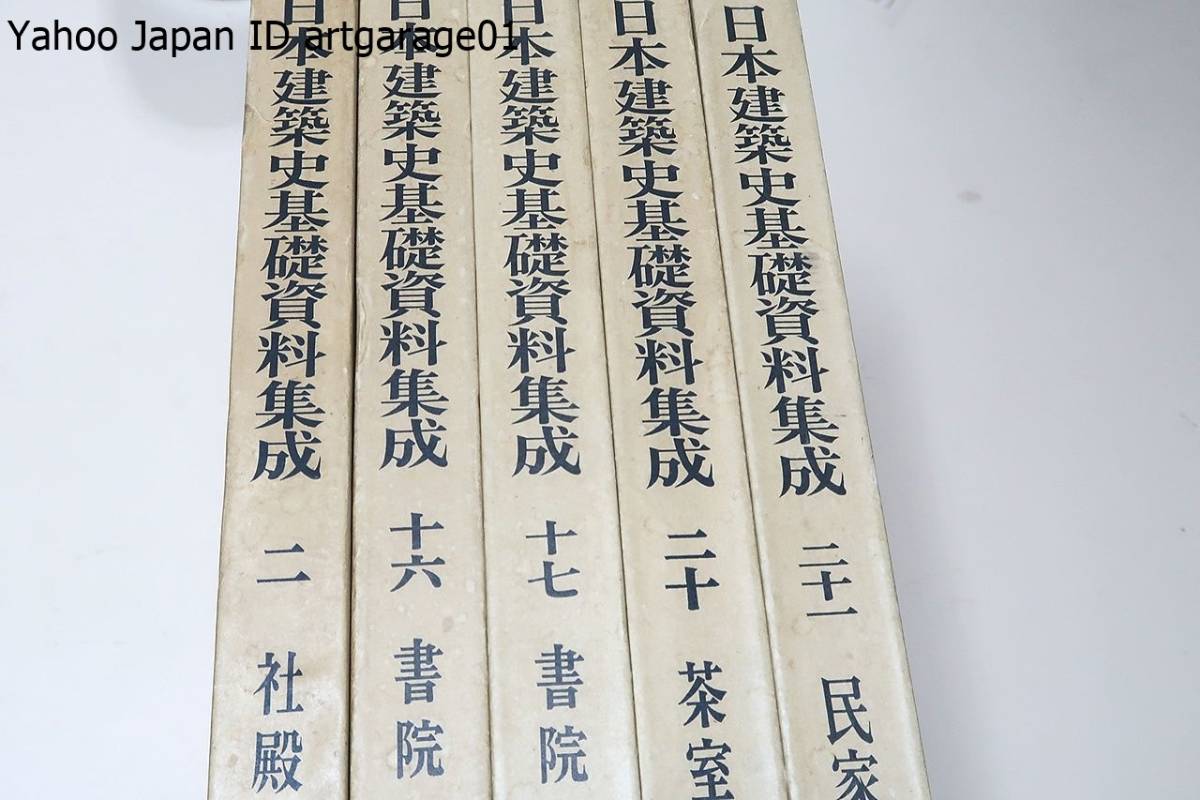 Yahoo Japan ID artgarage01
日本建築史基礎資料集成 二 社殿
日本建築史基礎資料集成 十六 書院
日本建築史基礎資料集成 十七 書院
日本建築史基礎資料集成 二十 茶室
日本建築史基礎資料集成 二十一 民家